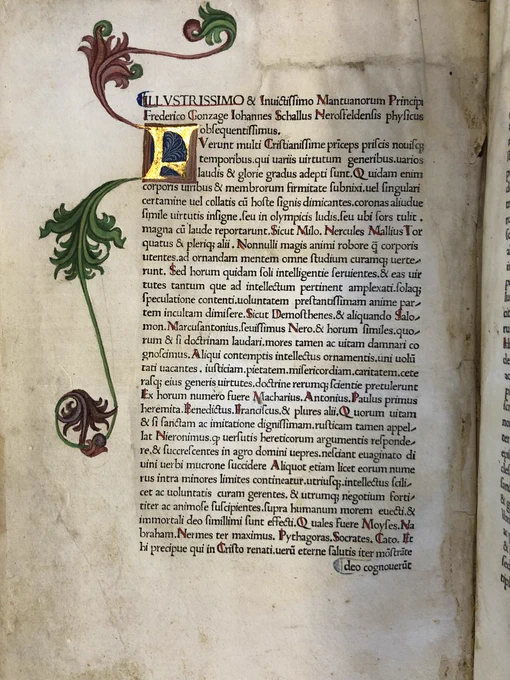 ILLVSTRISSIMO & Inuictissimo Mantuanorum Principi
Frederico Gonzage Iohannes Schallus Herosfeldensis physicus
obsequentissimus.
FVerunt multi Cristianissime prīceps priscis nouisq;
temporibus.qui uariis uirtutum generibus.uarios
laudis & glorie gradus adepti sunt.Quidam enim
corporis uiribus & membrorum firmitate subnixi.uel singulari
certamine uel collatis cū hoste signis dimicantes.coronas aliudue
simile uirtutis insigne.seu in olympicis ludis.seu ubi sors tulit.
magna cū laude reportarunt.Sicut Milo. Hercules Mallius Tor
quatus & pleriq; alii. Nonnulli magis animi robore q̄ corporis
utentes.ad ornandam mentem omne studium curamq; uerte-
runt. Sed horum quidam soli intelligentie seruientes.& eas uir
tutes tantum que ad intellectum pertinent amplexati.solaq;
speculatione contenti.uoluntatem prestantissimam anime par-
tem incultam dimisere.Sicut Demosthenes.& aliquando Salo-
mon.Marcusantonius.seuissimus Nero.& horum similes.quo-
rum & si doctrinam laudari.mores tamen ac uitam damnari co
gnoscimus. Aliqui contemptis intellectus ornamentis.uni uolū
tati uacantes. iusticiam.pietatem.misericordiam.caritatem.cete
rasq; eius generis uirtutes.doctrine rerumq; scientie pretulerunt
Ex horum numero fuere Macharius. Antonius.Paulus primus
heremita.Benedictus.Franciscus.& plures alii.Quorum uitam
& si sanctam ac imitatione dignissimam.rusticam tamen appel-
lat Hieronimus.q uersutis hereticorum argumentis responde-
re.& succrescentes in agro domini uepres.nesciant euaginato di
uini uerbi mucrone succidere Aliquot etiam licet eorum nume
rus intra minores limites contineatur.utriusq;.intellectus scili-
cet ac uoluntatis curam gerentes.& utrumq; negotium forti-
titer ac animose suscipientes.supra humanum morem euecti.&
immortali deo simillimi sunt effecti.Quales fuere Moyses.Ha
braham.Hermes ter maximus. Pythagoras.Socrates. Cato. Et
hi precipue qui in Cristo renati.uerū eterne salutis iter mōstrāte
deo cognouerūt